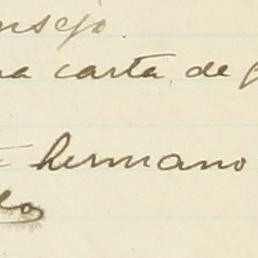 nsejo
na carta, de
hermano